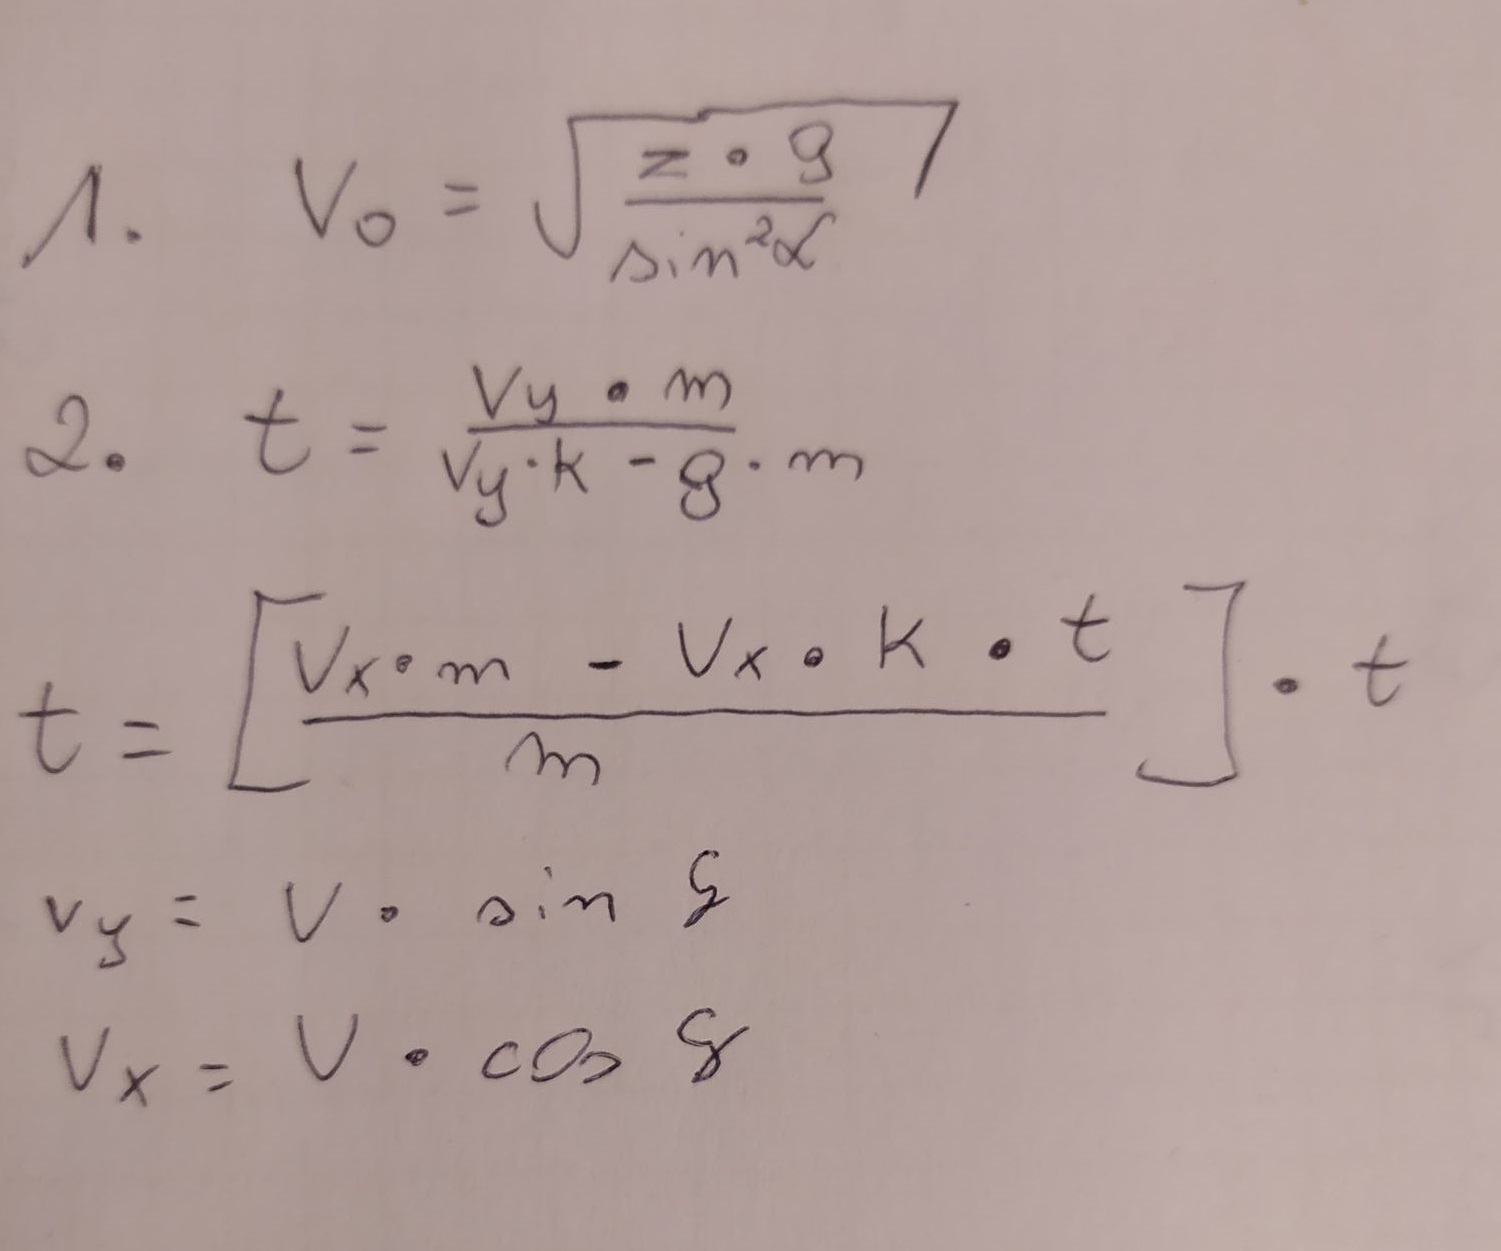 1. V₀ = √(z · g / sin²α)
2. t = (Vy · m) / (Vy · k - g · m)
t = [(Vx · m - Vx · k · t) / m] · t
vy = V · sin
Vx = V · cos